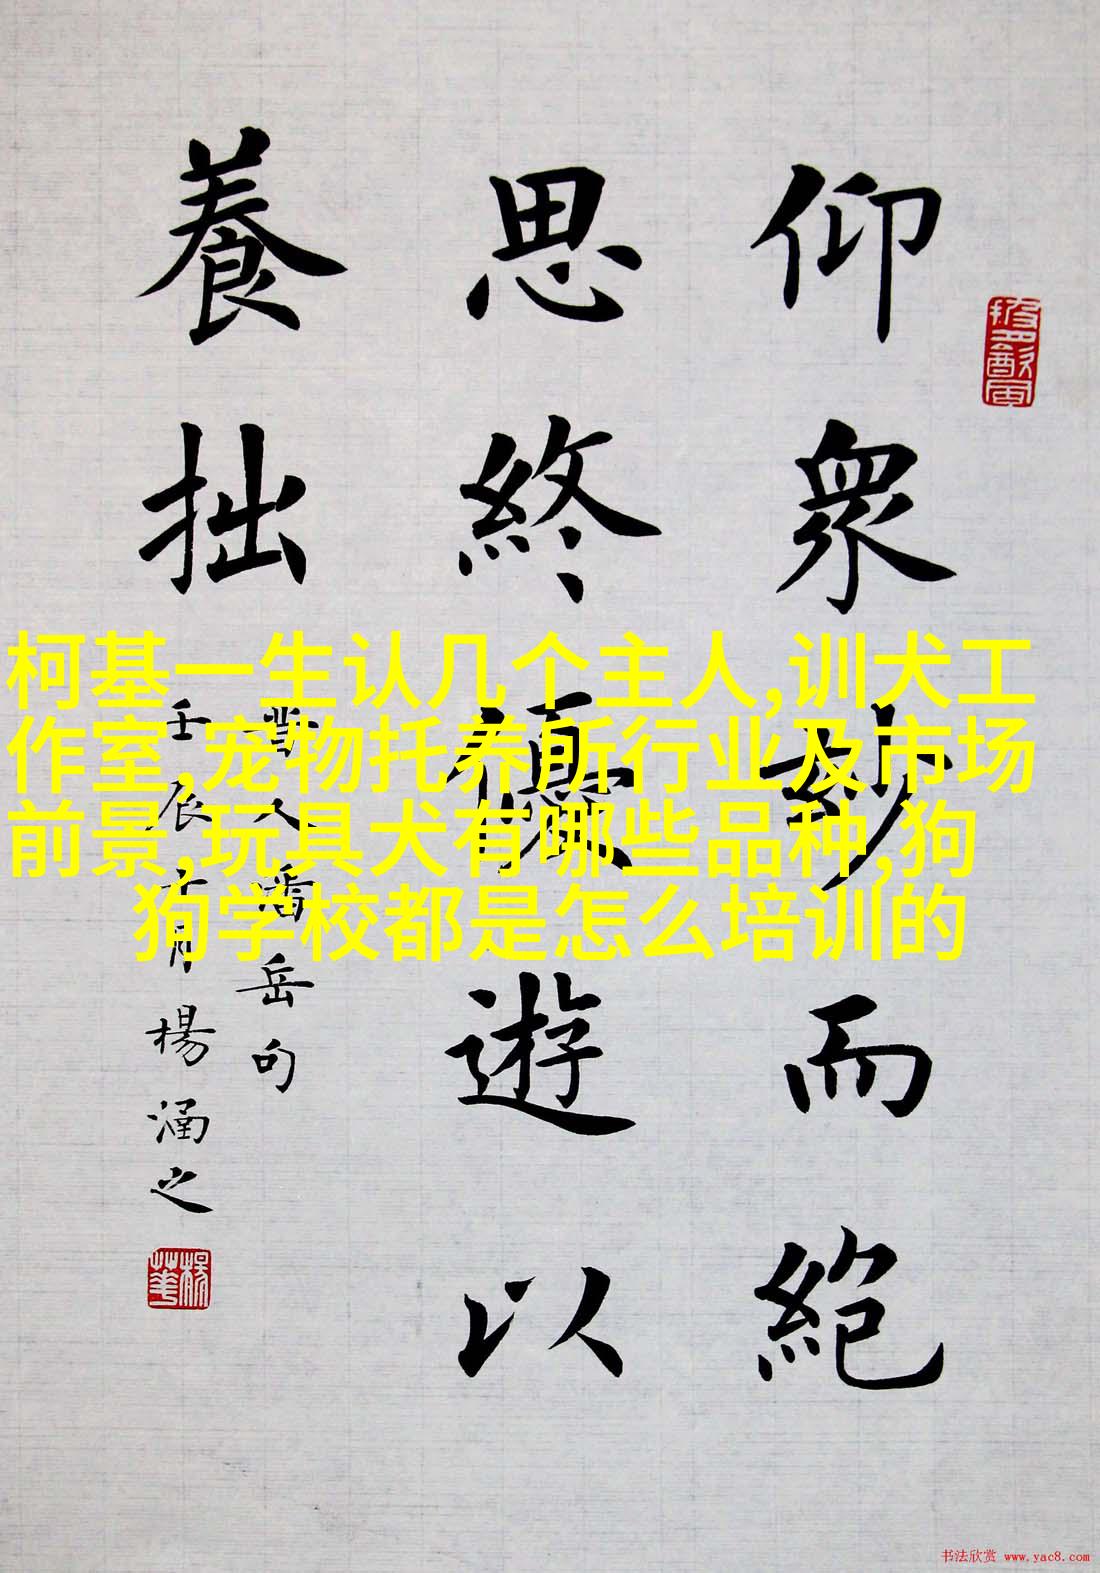 仰眾妙而絕
思終優遊以
養拙
晉人潘岳句
壬辰六月楊涵之
柯基一生认几个主人,训犬工
作室,宠物托养所行业及市场
前景,玩具犬有哪些品种,狗
狗学校都是怎么培训的
书法欣赏 www.yac8.com